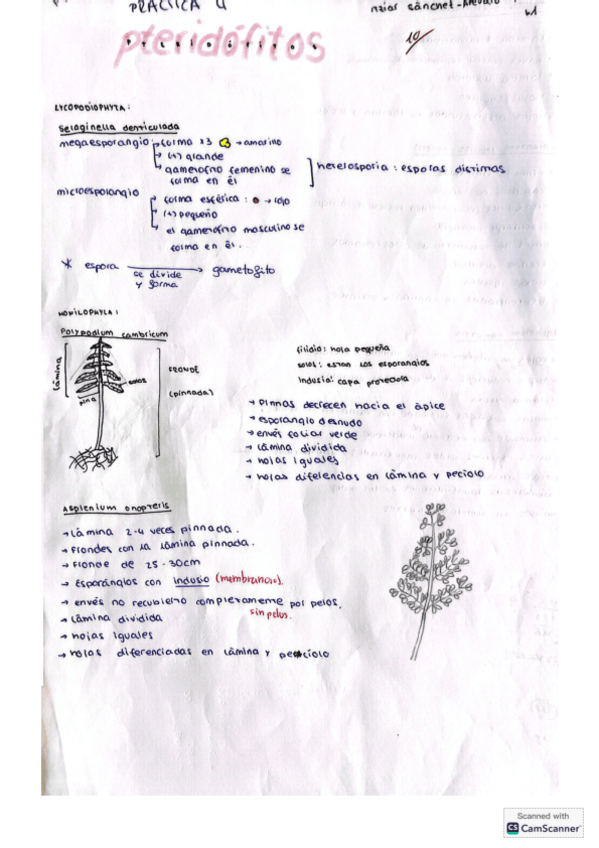 PRÁCTICA 4
pteridófitos
10
LYCOPODIOPHYTA:
Selaginella denticulada
megaesporangio → forma x3 → amarillo
→ (+) grande
→ gametofito femenino se
forma en él
heterosporia: esporas distintas
microesporangio → forma esférica: → rojo
→ (+) pequeño
→ el gametofito masculino se
forma en él.
* espora → gametofito
se divide
y forma
MONILOPHYTA:
Polypodium cambricum
lámina
pina
soros
FRONDE
(pinnada)
filidio: hoja pequeña
soros: están los esporangios
Indusio: capa protectora
→ Pinnas decrecen hacia el ápice
→ esporangio desnudo
→ envés foliar verde
→ lámina dividida
→ hojas iguales
→ hojas diferencias en lámina y peciolo
Asplenium onopteris
→ Lámina 2-4 veces pinnada.
→ Frondes con la lámina pinnada.
→ Fronde de 25-30cm
→ Esporángios con indusio (membranoso).
→ envés no recubierto completamente por pelos.
sin pelos.
→ Lámina dividida
→ hojas iguales
→ hojas diferenciadas en lámina y peciolo
Scanned with
CS CamScanner